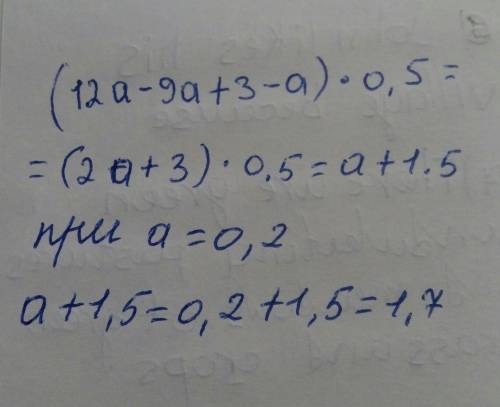 (12a-9a+3-a)·0,5=
=(2a+3)·0.5=a+1.5
при a=0,2
a+1,5=0,2+1,5=1,7